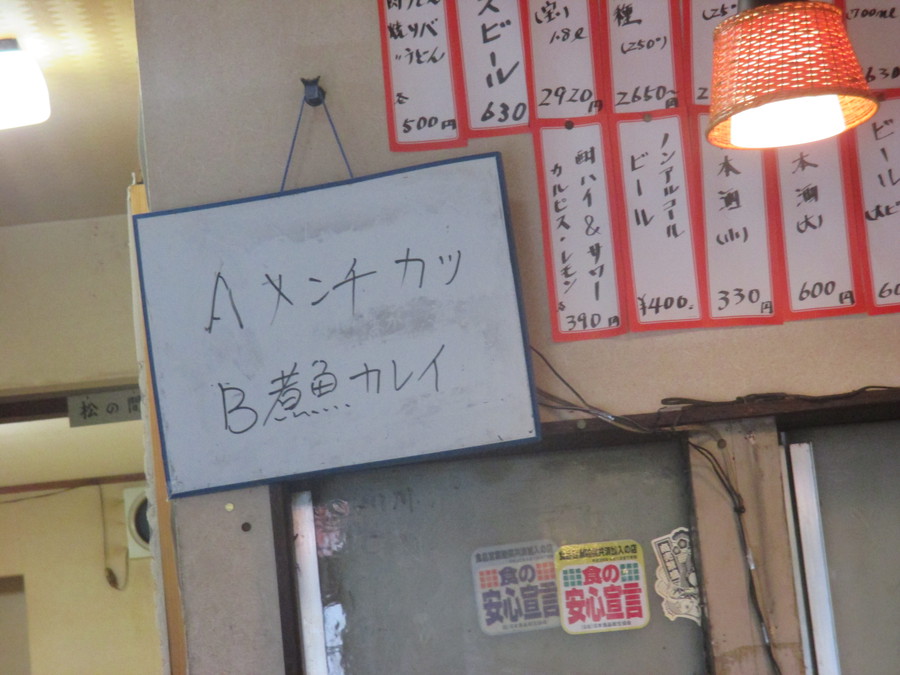 A メンチカツ
B 煮魚カレイ
焼ソバ
うどん
各
500円
ビール
630
(宝)
1.8ℓ
2920円
種
(250")
2650〜円
酎ハイ&サワー
カルピス・レモン
各390円
ノンアルコール
ビール
¥400.-
本酒
(小)
330円
本酒
(大)
600円
ビール
松の間
食の
安心宣言
食の
安心宣言